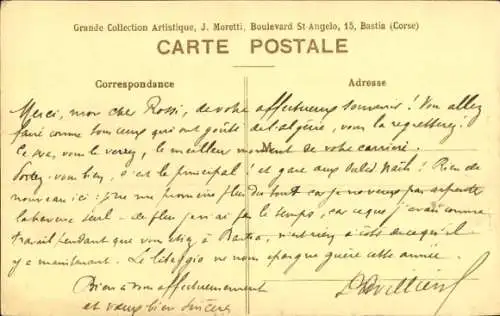 Grande Collection Artistique, J. Moretti, Boulevard St-Angelo, 15, Bastia (Corse)
CARTE POSTALE
Correspondance
Adresse
Merci, mon cher Rossi, de votre affectueux souvenir ! Vous allez
faire comme tous ceux qui ont goûté de l'algérie, vous la regretterez.
Ce sera, vous le verrez, le meilleur moment de votre carrière.
vous bien, c'est le principal ! et gare aux Ouled Naïls ! Rien de
nouveau ici : je ne me promène plus du tout car je ne veux pas arpenter
seul - de plus je n'ai pas le temps, car ce que j'avais comme
travail pendant que vous étiez à Bastia, n'est rien à côté de ce qu'il
y a maintenant. Le ne nous épargne guère cette année.
Bien affectueusement
et vœux bien sincères